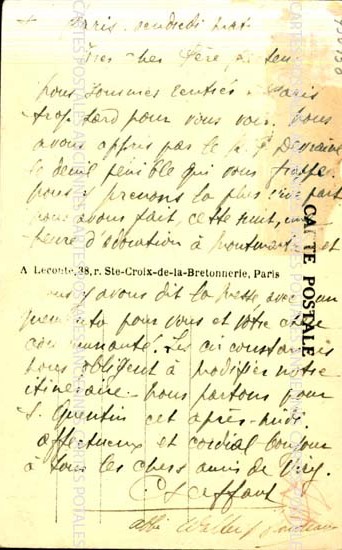 + Paris. vendredi
Très cher Père
nous sommes rentrés à Paris
trop tard pour vous voir. Nous
avons appris par le R. P.
le deuil pénible qui vous frappe.
nous y prenons la plus vive part
nous avons fait, cette nuit, une
heure d'adoration à Montmartre et
A Leconte, 38, r. Ste-Croix-de-la-Bretonnerie, Paris
nous y avons dit la messe avec un
memento pour vous et votre chère
communauté. Les circonstances
nous obligent à modifier notre
itinéraire. nous partons pour
St Quentin cet après-midi.
affectueux et cordial bonjour
à tous les chers amis de
abbé
CARTE POSTALE